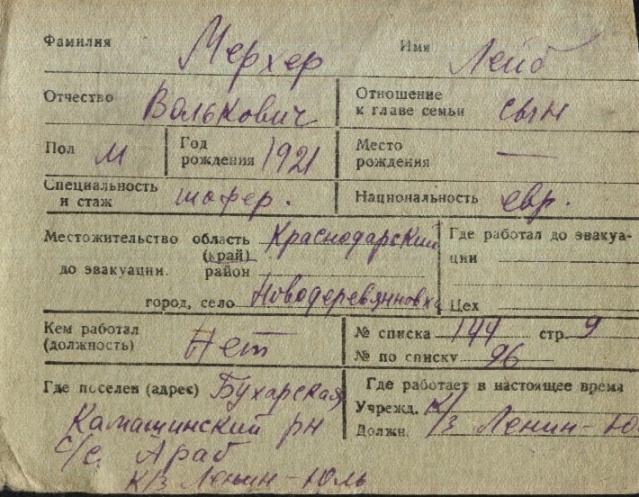 Фамилия Мерхер Имя Лейб
Отчество Волькович Отношение к главе семьи сын
Пол М Год рождения 1921 Место рождения —
Специальность и стаж шофер. Национальность евр.
Местожительство область (край) Краснодарский Где работал до эвакуа-
до эвакуации. район ции
город, село Новодеревянновка Цех
Кем работал (должность) Нет № списка 144 стр. 9
№ по списку 96
Где поселен (адрес) Бухарская Где работает в настоящее время
Камашинский рн Учрежд. к/з Ленин-
с/с. Араб Должн.
к/з Ленин-юль